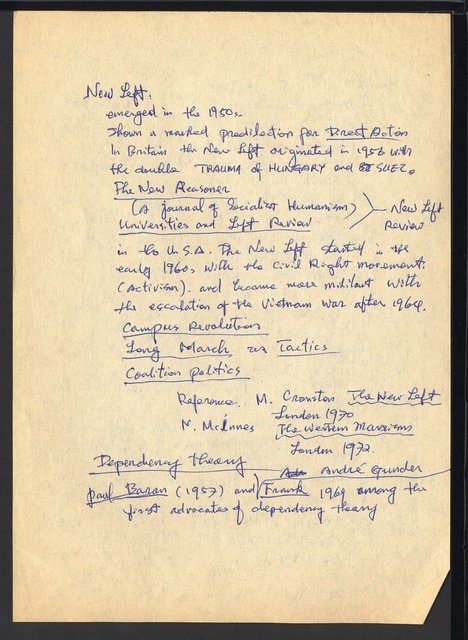 New Left.
emerged in the 1950s.
Shown a marked predilection for Direct Action
In Britain the New Left originated in 1956 with
the double TRAUMA of HUNGARY and SUEZ.
The New Reasoner
(A journal of Socialist Humanism) > New Left
Universities and Left Review Review
in the U.S.A. The New Left started in the
early 1960s with the Civil Right movements
(Activism). and became more militant with
the escalation of the Vietnam War after 1964.
Campus Revolution
Long March, Tactics
Coalition politics
Reference. M. Cranston The New Left
London 1970
N. McInnes The Western Marxism
London 1972.
Dependency theory
André Gunder
Paul Baran (1957) and Frank 1969 among the
first advocates of dependency theory